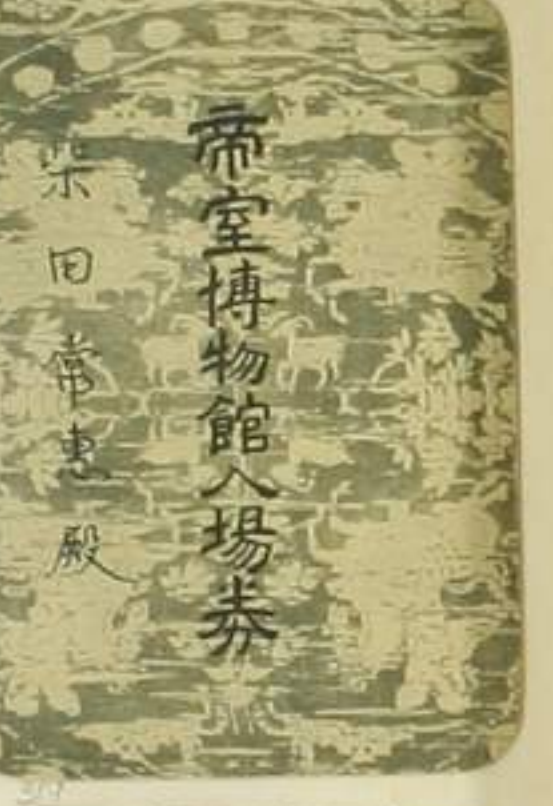 帝室博物館入場券
柴田常惠殿